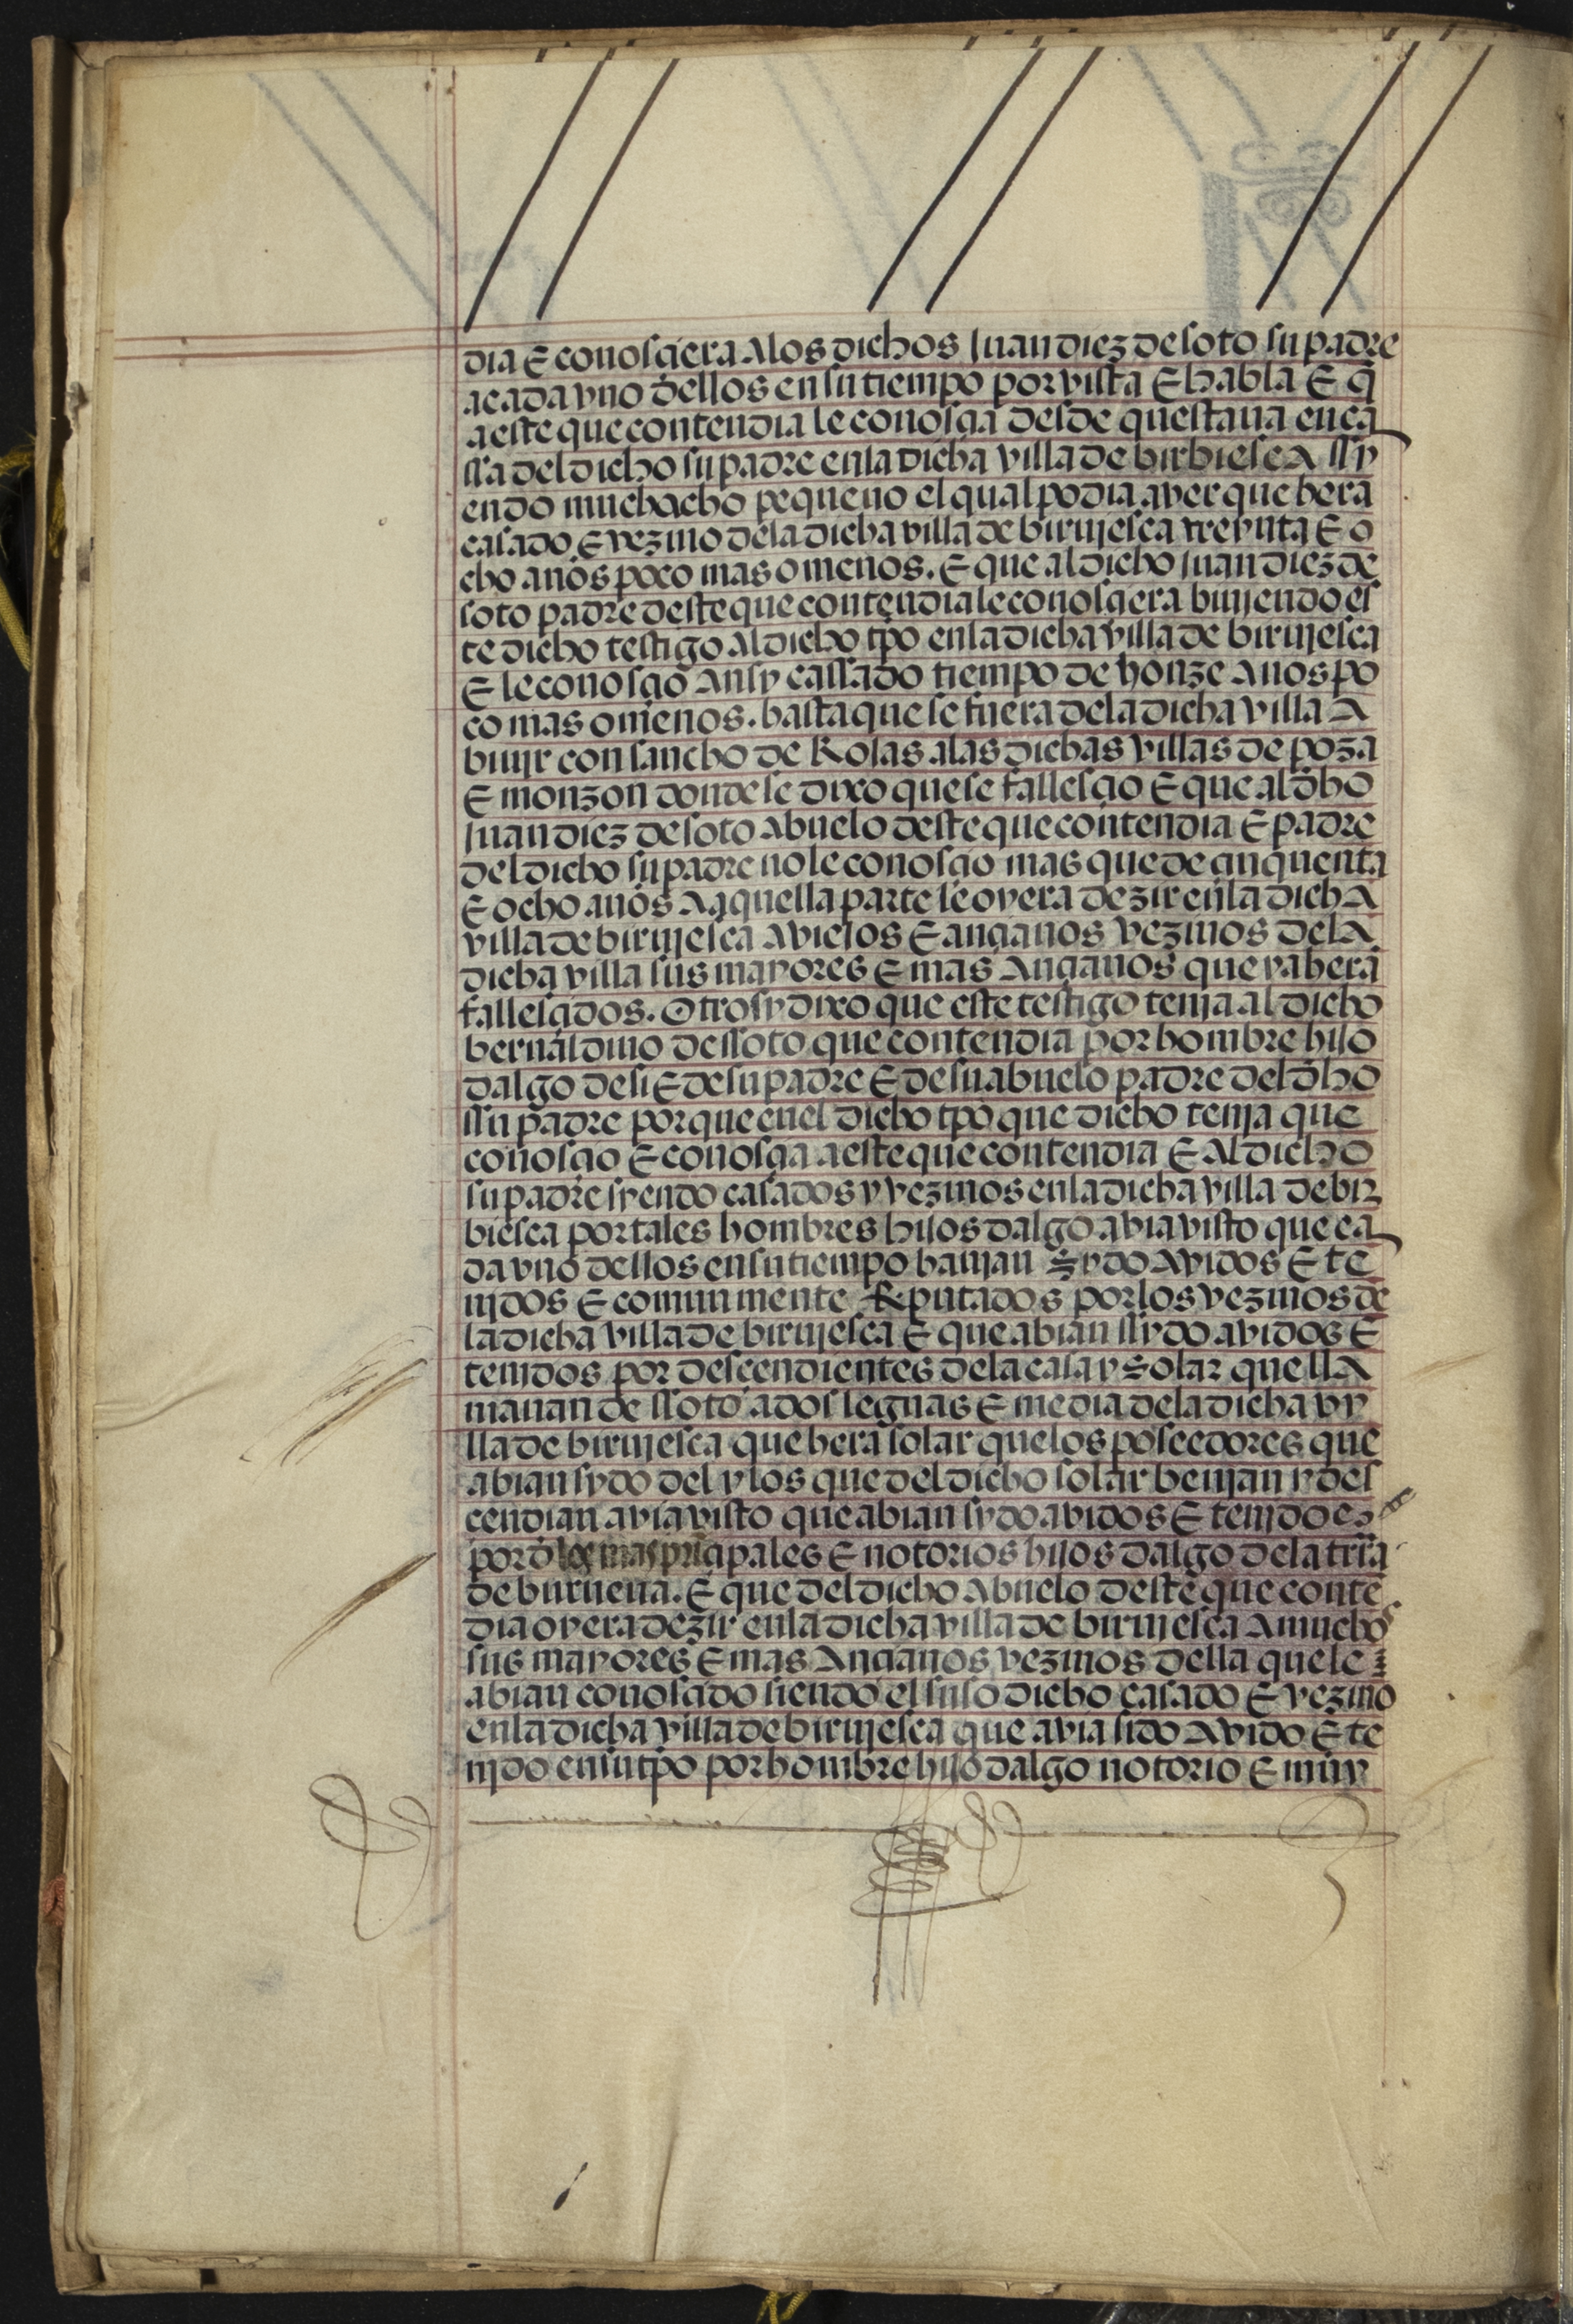 dia E conosçiera Alos dichos Juan diez de soto su padre
a cada vno dellos en su tiempo por vista E habla E q̃
a este que contendia le conosçia desde questaua en ca
ssa del dicho su padre enla dicha villa de birbiescA ssy
endo muchacho pequeno el qual podia aver que hera
casado E vezino dela dicha villa de birujesca treynta E o
cho años poco mas o menos. E que al dicho Juan diez de
soto padre deste que contendia le conosçiera biujendo es
te dicho testigo Al dicho tp̃o enla dicha villa de birujesca
E le conosçio Ansy cassado tiempo de honze Anos po
co mas o menos. hasta que se fuera dela dicha villa A
biujr con sancho de Rojas alas dichas villas de poza
E monzon donde se dixo que se fallesçio E que al dh̃o
Juan diez de soto Abuelo deste que contendia E padre
del dicho su padre no le conosçio mas que de çinquenta
E ocho años A aquella parte le oyera dezir enla dichA
villa de birujesca A viejos E ançianos vezinos delA
dicha villa sus mayores E mas Ançianos que ya hera
fallesçidos. Otrosy dixo que este testigo tenja al dicho
bernaldino de ssoto que contendia por hombre hijo
dalgo de si E de su padre E de su abuelo padre del dh̃o
ssu padre porque enel dicho tp̃o que dicho tenja que
conosçio E conosçia a este que contendia E Al dicho
su padre syendo casados y vezinos enla dicha villa de bir
biesca por tales hombres hijos dalgo avia visto que ca
da vno dellos en su tiempo havian sydo Avidos E te
njdos E comunmente Reputados por los vezinos de
la dicha villa de birujesca E que abian ssydo avidos E
tenjdos por descendientes dela casa y solar que llA
mauan de ssoto a dos leguas E media dela dicha vy
lla de birujesca que hera solar quelos poseedores que
abian sydo del y los que del dicho solar benjan y des
cendian avia visto que abian sydo avidos E tenjdoes
por d los mas prinçipales E notorios hijos dalgo dela trr̃a
de burueua. E que del dicho Abuelo deste que contẽ
dia oyera dezir enla dicha villa de birujesca A muchos
sus mayores E mas Ançianos vezinos della que le
abian conosçido siendo el suso dicho casado E vezino
enla dicha villa de birujesca que avia sido Avido E te
njdo en su tp̃o por hombre hijo dalgo notorio E muy